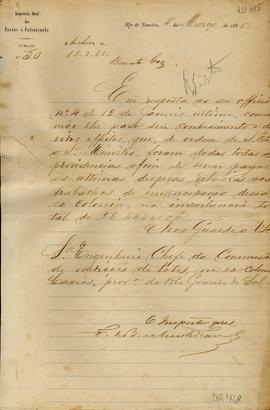 Inspectoria Geral
das
Terras e Colonisação
Rio de Janeiro, 5 de Março de 1885.
1ª Secção
Nº 50
Archive-se
18.3.85.
Em resposta ao seu officio
nº 4 de 12 de Janeiro ultimo, commu-
nico-lhe para seu conhecimento e de-
vidos effeitos, que, de ordem de S. Ex.
o Sr. Ministro, foram dadas todas as
providencias afim de serem pagas
as ultimas despezas relativas aos
trabalhos de emancipação dessa
ex colonia, na importancia to-
tal de
Deos Guarde a V.
Sr. Engenheiro Chefe da Commissão
de medições de lotes, na ex colonia
Caxias, provª do Rio Grande do Sul.
O Inspector geral
F. de B.